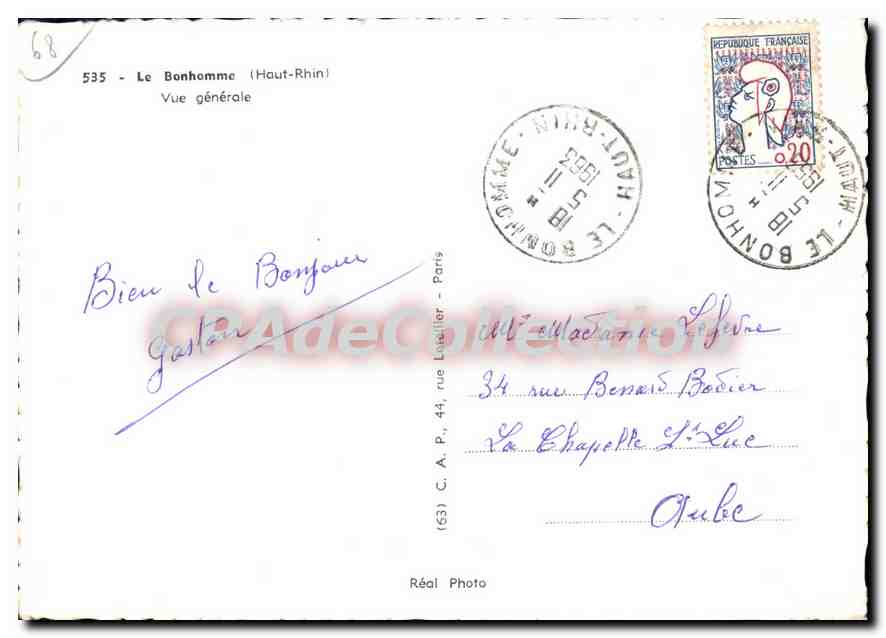 68
535 - Le Bonhomme (Haut-Rhin)
Vue générale
REPUBLIQUE FRANÇAISE
POSTES 0,20
LE BONHOMME - HAUT-RHIN
18 H
5 - 11
1963
LE BONHOMME - HAUT-RHIN
18 H
5 - 11
1963
Bien le Bonjour
Gaston
CPAdeCollection
Mr Madame Lefevre
34 rue Bodier
La Chapelle St Luc
Aube
(63) C. A. P., 44, rue Letellier - Paris
Réal Photo